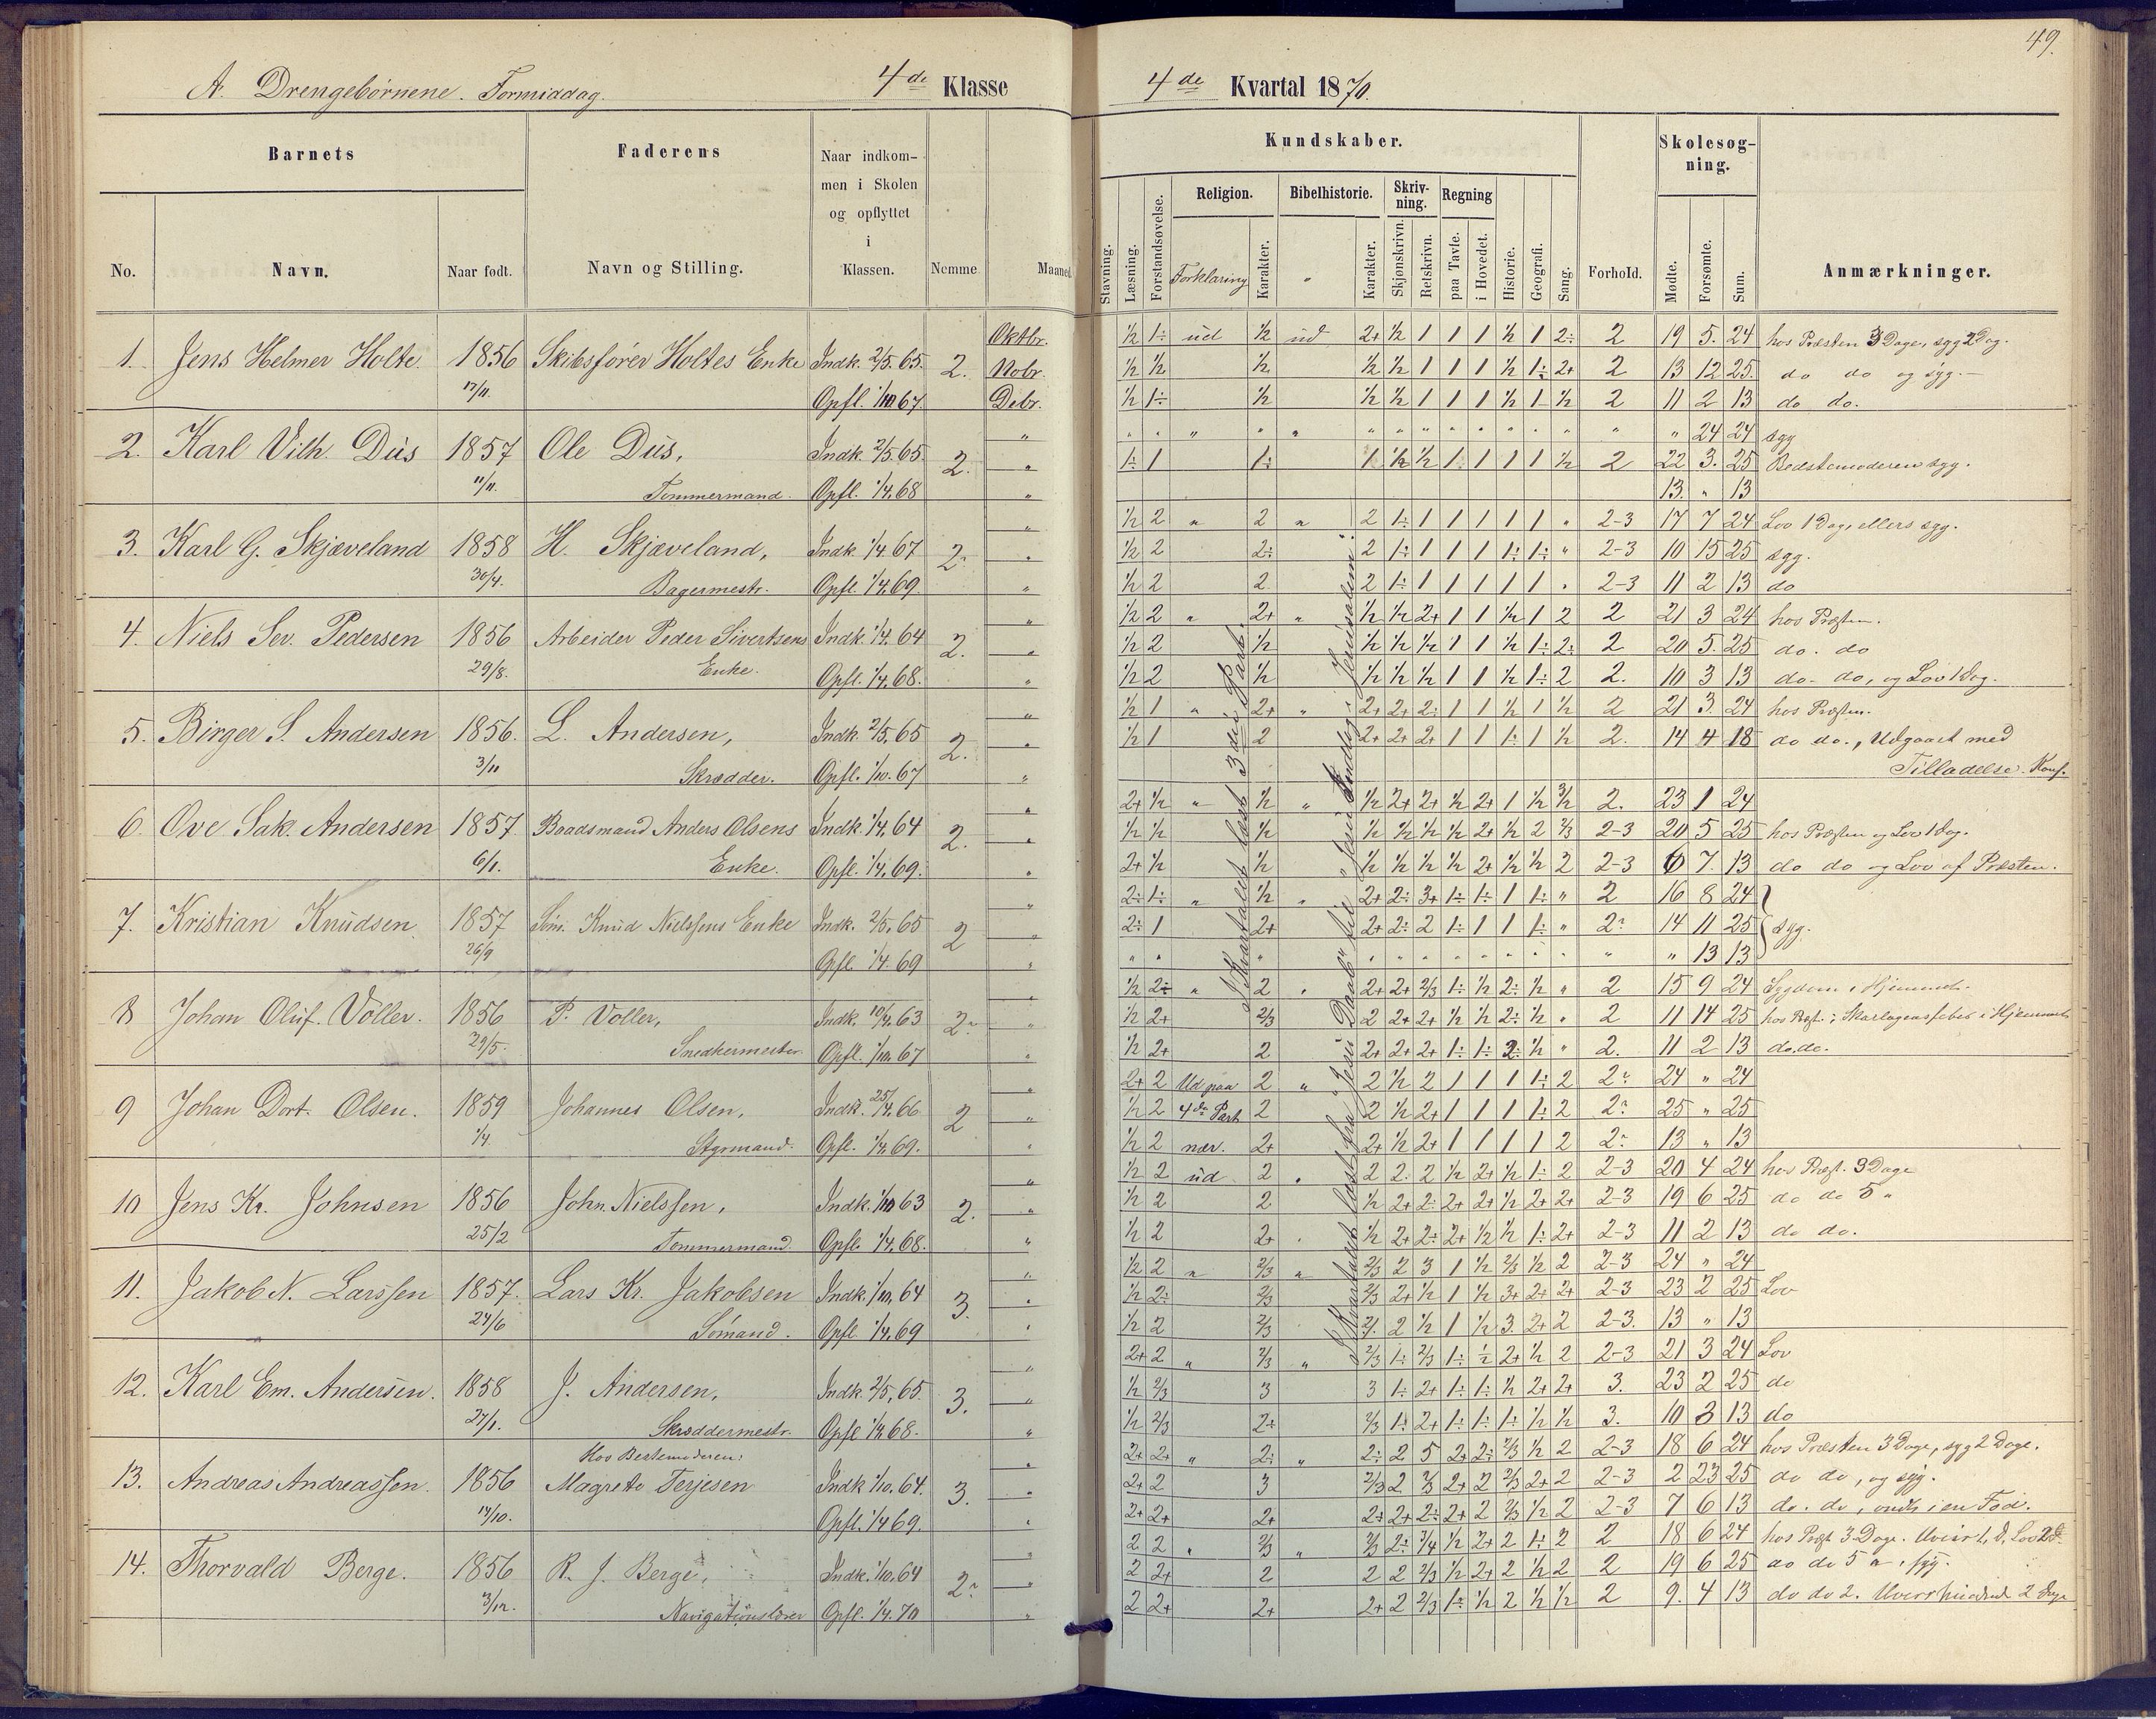 49.
A. Drengebørnene. Formiddag.
4de Klasse
4de Kvartal 1870.
Barnets
Faderens
Naar indkom-
men i Skolen
og opflyttet
i
Klassen.
No.
Navn.
Naar født.
Navn og Stilling.
Nemme
Maaned.
Kundskaber.
Skolesøg-
ning.
Stavning.
Læsning.
Forstandsøvelse.
Religion.
Forklaring
Karakter.
Bibelhistorie.
"
Karakter.
Skriv-
ning.
Skjønskrivn.
Retskrivn.
Regning
paa Tavle.
i Hovedet.
Historie.
Geografi.
Sang.
Forhold.
Mødte.
Forsømte.
Sum.
Anmærkninger.
1. Jens Helmer Holte. 1856 17/11. Skibsfører Holtes Enke Indk. 2/5. 65. Opfl. 1/10. 67. 2. Oktbr. Nobr. Debr.
½ 1÷ ud ½ ud 2+ ½ 1 1 1 ½ 1 2÷ 2 19 5. 24 hos Præsten 3 Dage, syg 2 Dag.
½ ½ ½ ½ ½ 1 1 1 ½ 1÷ 2+ 2 13 12 25. do do og syg.
½ 1÷ ½ ½ ½ 1 1 1 ½ 1 ½ 2 11 2 13 do do.
2. Karl Vilh. Düs 1857 11/11. Ole Düs, Tømmermand. Indk. 2/5. 65 Opfl. 1/4. 68 2.
" 24 24 syg
1÷ 1 1÷ 1 ½ ½ 1 1 1 1 ½ 2 22 3. 25 Bedstemoderen syg.
13. " 13
3. Karl G. Skjæveland 1858 30/4. H. Skjæveland, Bagermestr. Indk 1/4. 67 Opfl. 1/4. 69. 2÷
½ 2 " 2 " 2 1÷ 1 1 1 1 1 " 2-3 17 7 24 Lov 1 Dag, ellers syg.
½ 2 2÷ 2 1÷ 1 1 1 1÷ 1÷ " 2-3 10 15 25 syg.
½ 2 2 2 1÷ 1 1 1 1 1 " 2-3 11 2 13 do
4. Niels Sev. Pedersen 1856 29/8. Arbeider Peder Sivertsens Enke. Indk. 1/4. 64 Opfl. 1/4. 68. 2.
½ 2 " 2+ " ½ ½ 2+ 1 1 ½ 1 2 2 21 3 24 hos Præsten.
½ 2 ½ ½ ½ ½ 1 1 ½ 1÷ 2÷ 2 20 5. 25 do. do
½ 2 ½ ½ ½ ½ 1 1 ½ 1÷ 2 2. 10 3 13 do. do, og Lov 1 Dag.
5. Birger S. Andersen 1856. 3/11 L. Andersen, Skrædder. Indk. 2/5. 65 Opfl. 1/10. 67 2.
½ 1 " 2+ " 2+ 2+ 2÷ 1 1 ½ 1 ½ 2 21 3. 24 hos Præsten.
½ 1 2 2+ 2+ 2+ 1 1 1÷ 1 ½ 2. 14 4 18 do do., Udgaaet med
Tilladelse. Konf.
6. Ove Sak. Andersen 1857 6/1. Baadsmand Anders Olsens Enke. Indk. 1/4. 64 Opfl. 1/4. 69. 2.
2+ ½ " ½ " ½ 2+ 2+ ½ 2+ 1 ½ 2. 23 1 24
½ ½ ½ ½ ½ ½ ½ 2+ ½ 2 2/3 2-3 20 5 25 hos Præsten og Lov 1 Dag.
2+ ½ ½ ½ ½ ½ ½ 2+ ½ ½ 2 2-3 6 7. 13 do do og Lov af Præsten.
7. Kristian Knudsen 1857 26/9 Søm. Knud Nielssens Enke Indk. 2/5. 65 Opfl. 1/4. 69 2
2÷ 1÷ " ½ " 2+ 2÷ 3+ 1÷ 1÷ 1 1÷ " 2 16 8 24
2÷ 1 2+ 2+ 2÷ 2 1÷ 1 1 1÷ " 2÷ 14 11 25 syg.
" 13 13
8 Johan Oluf. Voller. 1856 29/5. P. Voller, Snedkermester. Indk. 10/4. 63 Opfl. 1/10. 67 2÷
½ 2÷ " 2 " 2+ 2+ 2/3 1÷ ½ 2÷ ½ " 2 15 9 24 Sygdom i Hjemmet.
½ 2+ 2/3 2 2+ 2+ ½ ½ 2÷ ½ " 2 11 14 25 hos Præst. i Skarlagensfeber i Hjemmet
½ 2+ 2 2+ 2+ 2+ 1÷ 1÷ 2÷ ½ " 2. 11 2 13 do. do.
9 Johan Dort. Olsen. 1859 1/4 Johannes Olsen, Styrmand. Indk. 25/4. 66 Opfl. 1/4. 69. 2
2+ 2 Ud paa 2 " 2 ½ 2 1 1 1 1÷ 2 2÷ 24 " 24
½ 2 4de Part 2 2 ½ 2+ 1 1 1 1÷ 2 2÷ 25 " 25
½ 2 nær. 2+ 2+ ½ 2+ 1 1 1 1 2 2÷ 13 " 13
10 Jens Kr. Johnsen 1856 25/2 John. Nielssen, Tømmermand. Indk. 1/10 63 Opfl. 1/4. 68. 2.
½ 2 ud 2 " 2 2. 2 ½ 2+ ½ 1÷ 2 2-3 20 4 24 hos Præst. 3 Dage
½ 2 2 ½ 2+ 2÷ 2+ 2+ ½ 2+ 2+ 2-3 19 6 25 do do 5 "
½ 2 2+ ½ 2+ 2÷ 2+ ½ ½ 1÷ 2+ 2-3 11 2 13 do do.
11. Jakob N. Larssen 1857. 24/6 Lars Kr. Jakobsen Sömand. Indk. 1/10. 64 Opfl. 1/4. 69 3.
½ 2 " 2/3 " 2/3 2 3 1 ½ 2/3 ½ 2 2-3 24 " 24
½ 2÷ 2/3 2/3 2+ ½ 1 ½ 3+ 2+ 2+ 2-3 23 2 25 Lov
½ 2 2/3 2 ½ 1 ½ 3. 2+ 2 2-3. 13 " 13
12. Karl Em. Andersen. 1858 27/1. J. Andersen, Skræddermestr. Indk. 2/5. 65. Opfl 1/4. 68. 3.
2+ 2 " 2/3 " 2/3 1÷ 2/3 1÷ ½ 2+ ½ 2 2-3 21 3 24 Lov
½ 2/3 3 3 1÷ 2+ 1÷ 1÷ ½ 2+ 2+ 3. 23 2 25 do
½ 2/3 2+ 2/3 1÷ 2+ 1÷ 1÷ 1÷ ½ ½ 3. 10 3 13 do
13. Andreas Andreassen. 1856 14/10. Hos Bestemoderen: Magrete Terjesen Indk 1/10. 64. Opfl. 1/4 69. 3.
2+ 2+ " 2÷ " 2÷ 2 5 2+ 2÷ 2/3 ½ 2 2-3 18 6 24 hos Præsten 3 Dage, syg 2 Dage.
2+ 2 3 2/3 2 2/3 2+ 2 2/3 2+ 2 2-3 2 23 25 do do, og syg.
2+ 2+ 2+ 2+ 2+ 2÷ 2+ 2 2/3 ½ 2 2-3 7 6 13 do. do, ondt i en Fod.
14. Thorvald Berge. 1856 3/12. R. J. Berge, Navigationslærer Indk. 1/10. 64 Opfl. 1/4. 70 2÷
2 2 " 2/3 " 2/3 2÷ 3/4 ½ 2+ 2 1÷ 2 2 18 6 24 hos Præst 3 Dage.
2 2+ 2 2 2 2/3 ½ 2+ 2 ½ 2 2 19 6 25 do do 5 syg.
2 2+ 2+ 2+ 2 2/3 1÷ ½ 2 ½ ½ 2 9. 4 13 do do 2. 2 Dage
I Kvartalet læst 3die Part.
I Kvartalet læst fra "Jesu Daab" til "Jesu Indtog i Jerusalem."